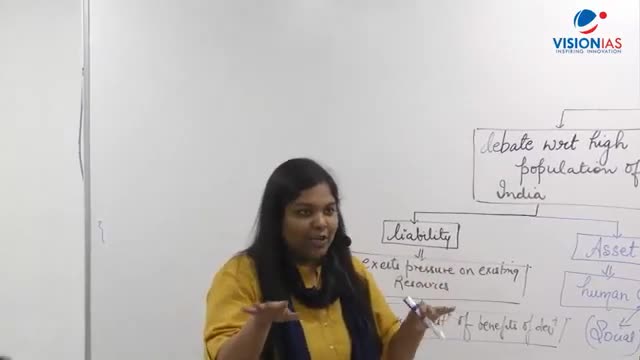 VISIONIAS
INSPIRING INNOVATION
debate wrt high
population of
India
liability
Asset
exerts pressure on existing
Resources
human
of benefits of devt
(Social